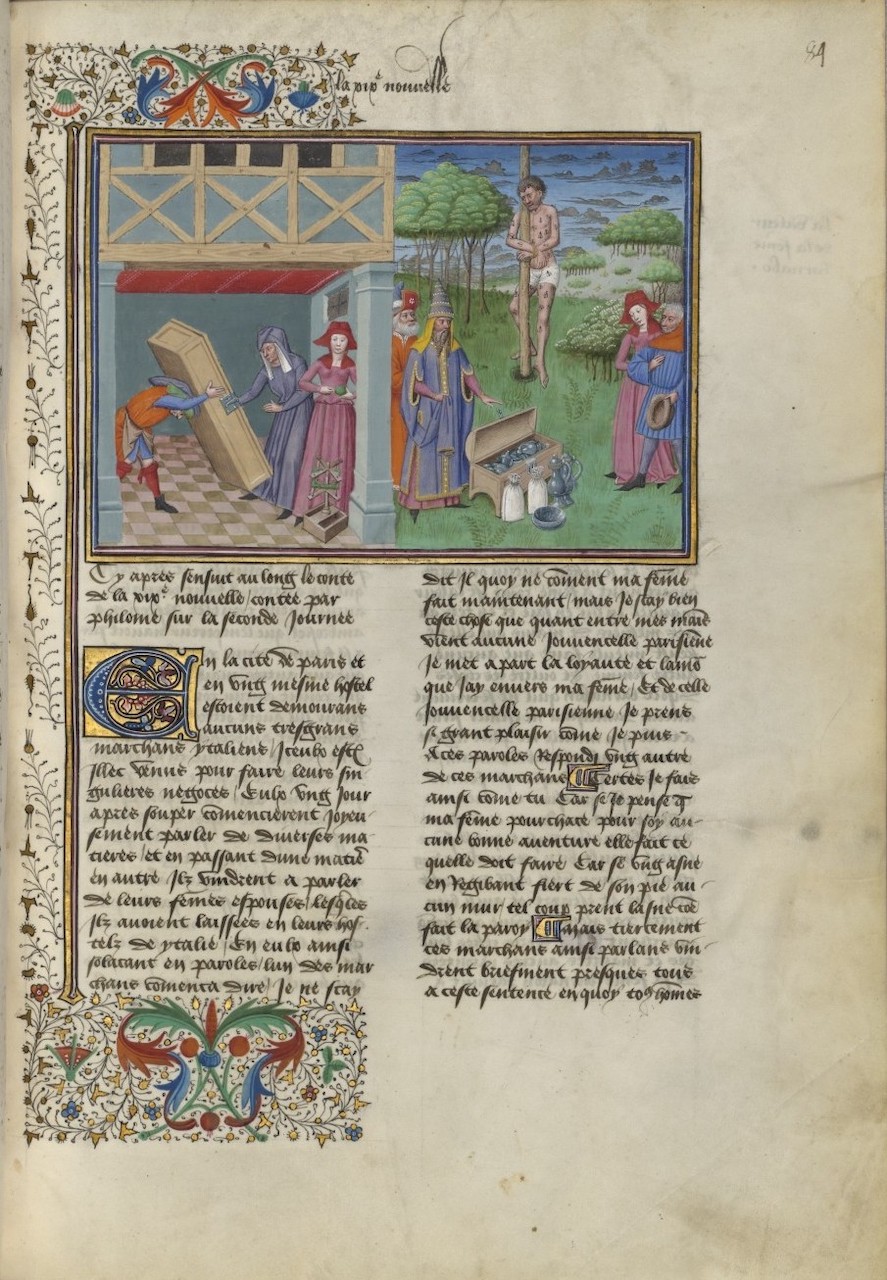 la xixe nouuelle
84
Cy apres sensuit au long le conte
de la xixe nouuelle / contee par
philome sur la seconde Journee
En la cite de paris et
en vng mesme hostel
estoient demourans
aucuns tresgrans
marchans ytaliens / Iceulx estās
Illec venus pour faire leurs sin-
gulieres negoces / Eulx vng Jour
apres souper cōmencierent Joyeu-
sement parler de diuerses ma-
tieres / et en passant dune matiē
en autre Ilz vindrent a parler
de leurs fēmes espouses / lesqles
Ilz auoient laissees en leurs hos-
telz de ytalie / En eulx ainsi
solacant en paroles / lun des mar
chans cōmenca dire / Je ne scay
dit Il quoy ne cōment ma fēme
fait maintenant / mais Je scay bien
ceste chose que quant entre mes mais
vient aucune Jouuencelle parisiēne
Je met a part la loyaute et lamō
que Jay enuers ma fēme / Et de celle
Jouuencelle parisienne Je prens
si grant plaisir cōme Je puis -
A ces paroles Respondi vng autre
de ces marchans Certes Je fais
ainsi cōme tu Car se Je pense q̄
ma fēme pourchace pour soy au-
cune bonne auenture elle fait ce
quelle doit faire Car se vng asne
en Regibant fiert de son pie au-
cun mur / tel coup prent lasne cōe
fait la paroy Mais tiercement
ces marchans ainsi parlans vin-
drent briefment presques tous
a ceste sentence en quoy to9 hōmes